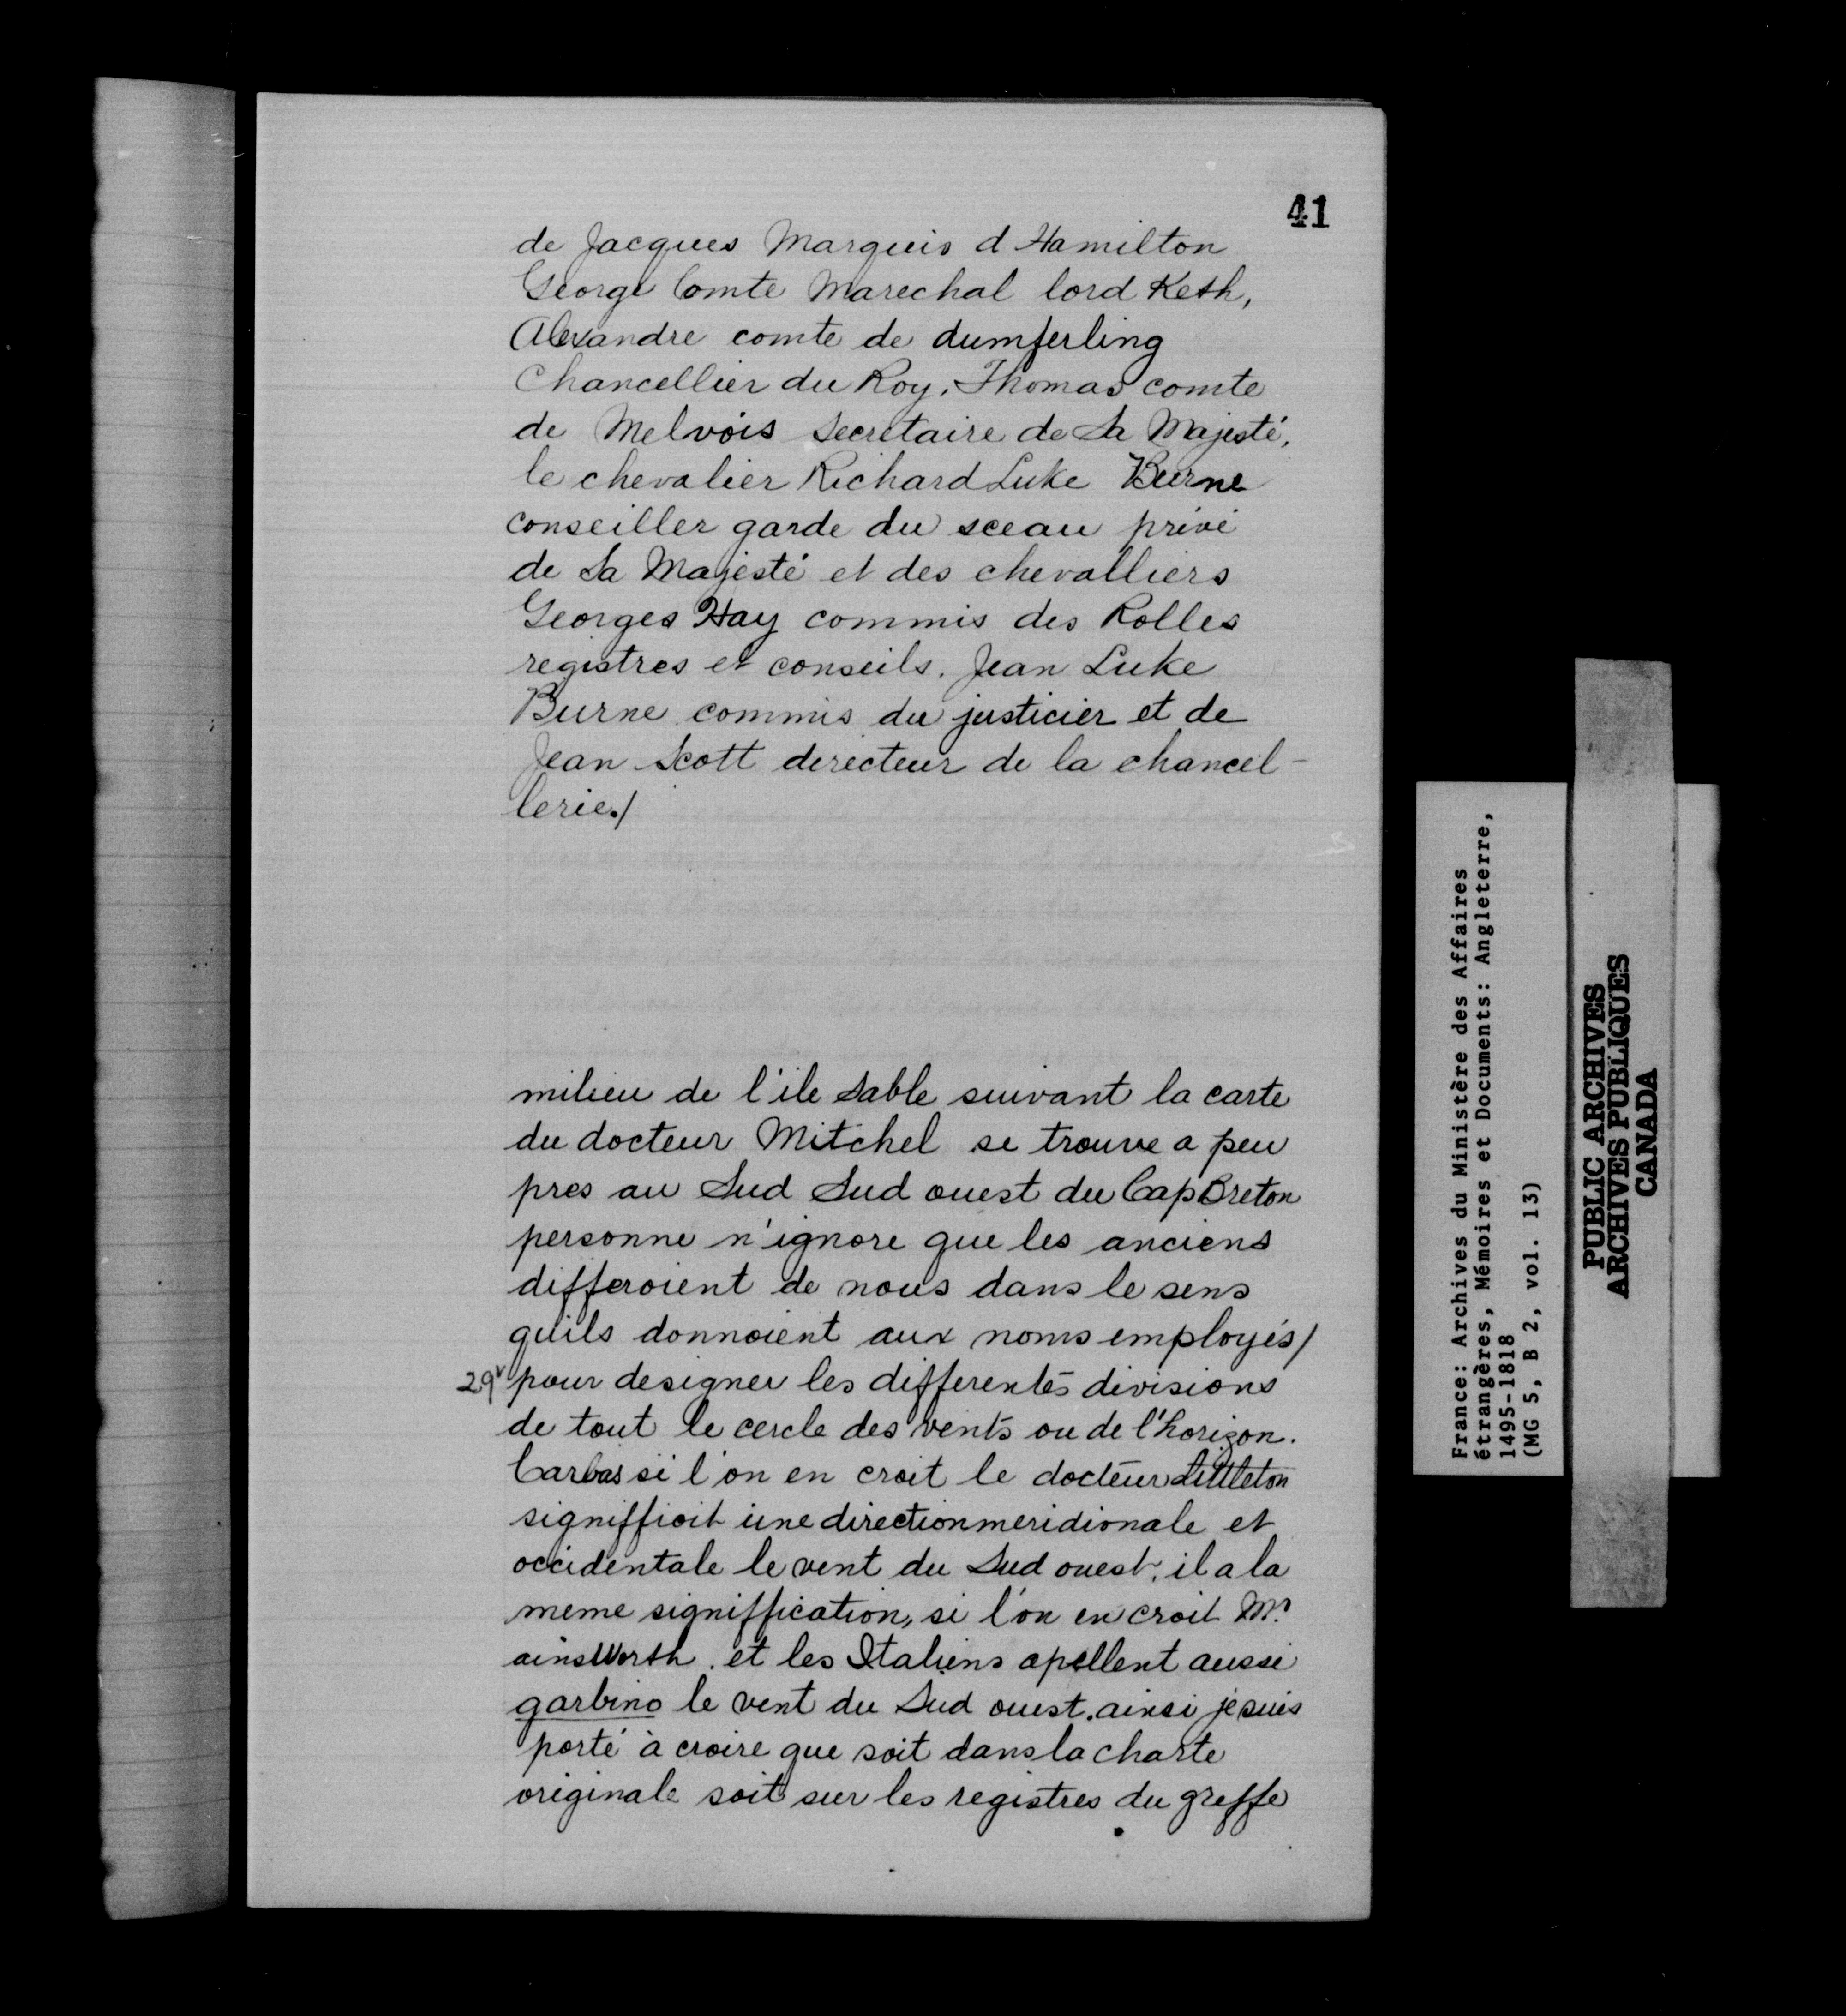 41
de Jacques Marquis d Hamilton
George Comte Marechal lord Keth,
Alexandre comte de dumferling
Chancellier du Roy, Thomas comte
de Melvois Secretaire de Sa Majesté,
le chevalier Richard Luke Burne
conseiller garde du sceau privé
de Sa Majesté et des chevalliers
Georges Hay commis des Rolles
registres et conseils. Jean Luke
Burne commis du justicier et de
Jean Scott derecteur de la chancel-
lerie./
milieu de l'ile Sable suivant la carte
du docteur Mitchel se trouve a peu
pres au Sud Sud ouest du Cap Breton
personne n'ignore que les anciens
differoient de nous dans le sens
quils donnoient aux noms employés/
29v pour designer les differentes divisions
de tout le cercle des vents ou de l'horizon.
Carbas si l'on en croit le docteur Littleton
signiffioit une direction meridionale et
occidentale le vent du Sud ouest, il a la
meme signiffication, si l'on en croit Mr.
ainsWorth. et les Italiens apellent aussi
garbino le vent du Sud ouest. ainsi je suis
porté à croire que soit dans la charte
originale soit sur les registres du greffe
France: Archives du Ministère des Affaires
étrangères, Mémoires et Documents: Angleterre,
1495-1818
(MG 5, B 2, vol. 13)
PUBLIC ARCHIVES
ARCHIVES PUBLIQUES
CANADA